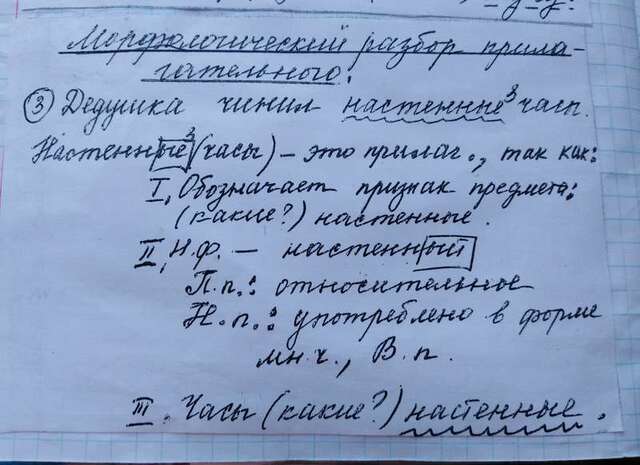 Морфологический разбор прила-
гательного:
③ Дедушка чинил настенные³ часы.
Настенные³ (часы) – это прилаг., так как:
I. Обозначает признак предмета:
(какие?) настенные.
II. Н.ф. – настенный
П.п.: относительное
Н.п.: употреблено в форме
мн.ч., В.п.
III. Часы (какие?) настенные.